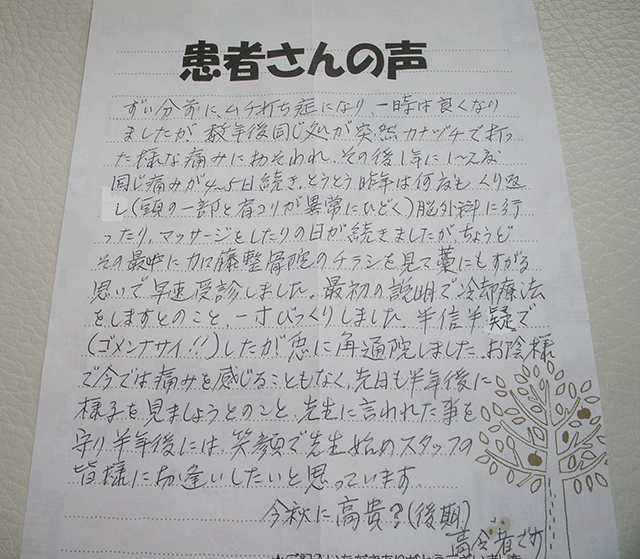 患者さんの声
ずい分前に、ムチ打ち症になり 一時は良くなり
ましたが、数年後同じ処が突然カナヅチで打っ
た様な痛みにおそわれ、その後1年に1〜2度
同じ痛みが4〜5日続き、とうとう昨年は何度もくり返
し(頭の一部と肩コリが異常にひどく)脳外科に行
ったり、マッサージをしたりの日が続きましたがちょうど
その最中に加藤整骨院のチラシを見て藁にもすがる
思いで早速受診しました。最初の説明で冷却療法
をしますとのこと、一寸びっくりしました。半信半疑で
(ゴメンナサイ!!)したが兎に角通院しました。お陰様
で今では痛みを感じることもなく、先日も半年後に
様子を見ましょうとのこと、先生に言われた事を
守り半年後には、笑顔で先生始めスタッフの
皆様にお逢いしたいと思っています。
今秋に高貴?(後期)
高令者です